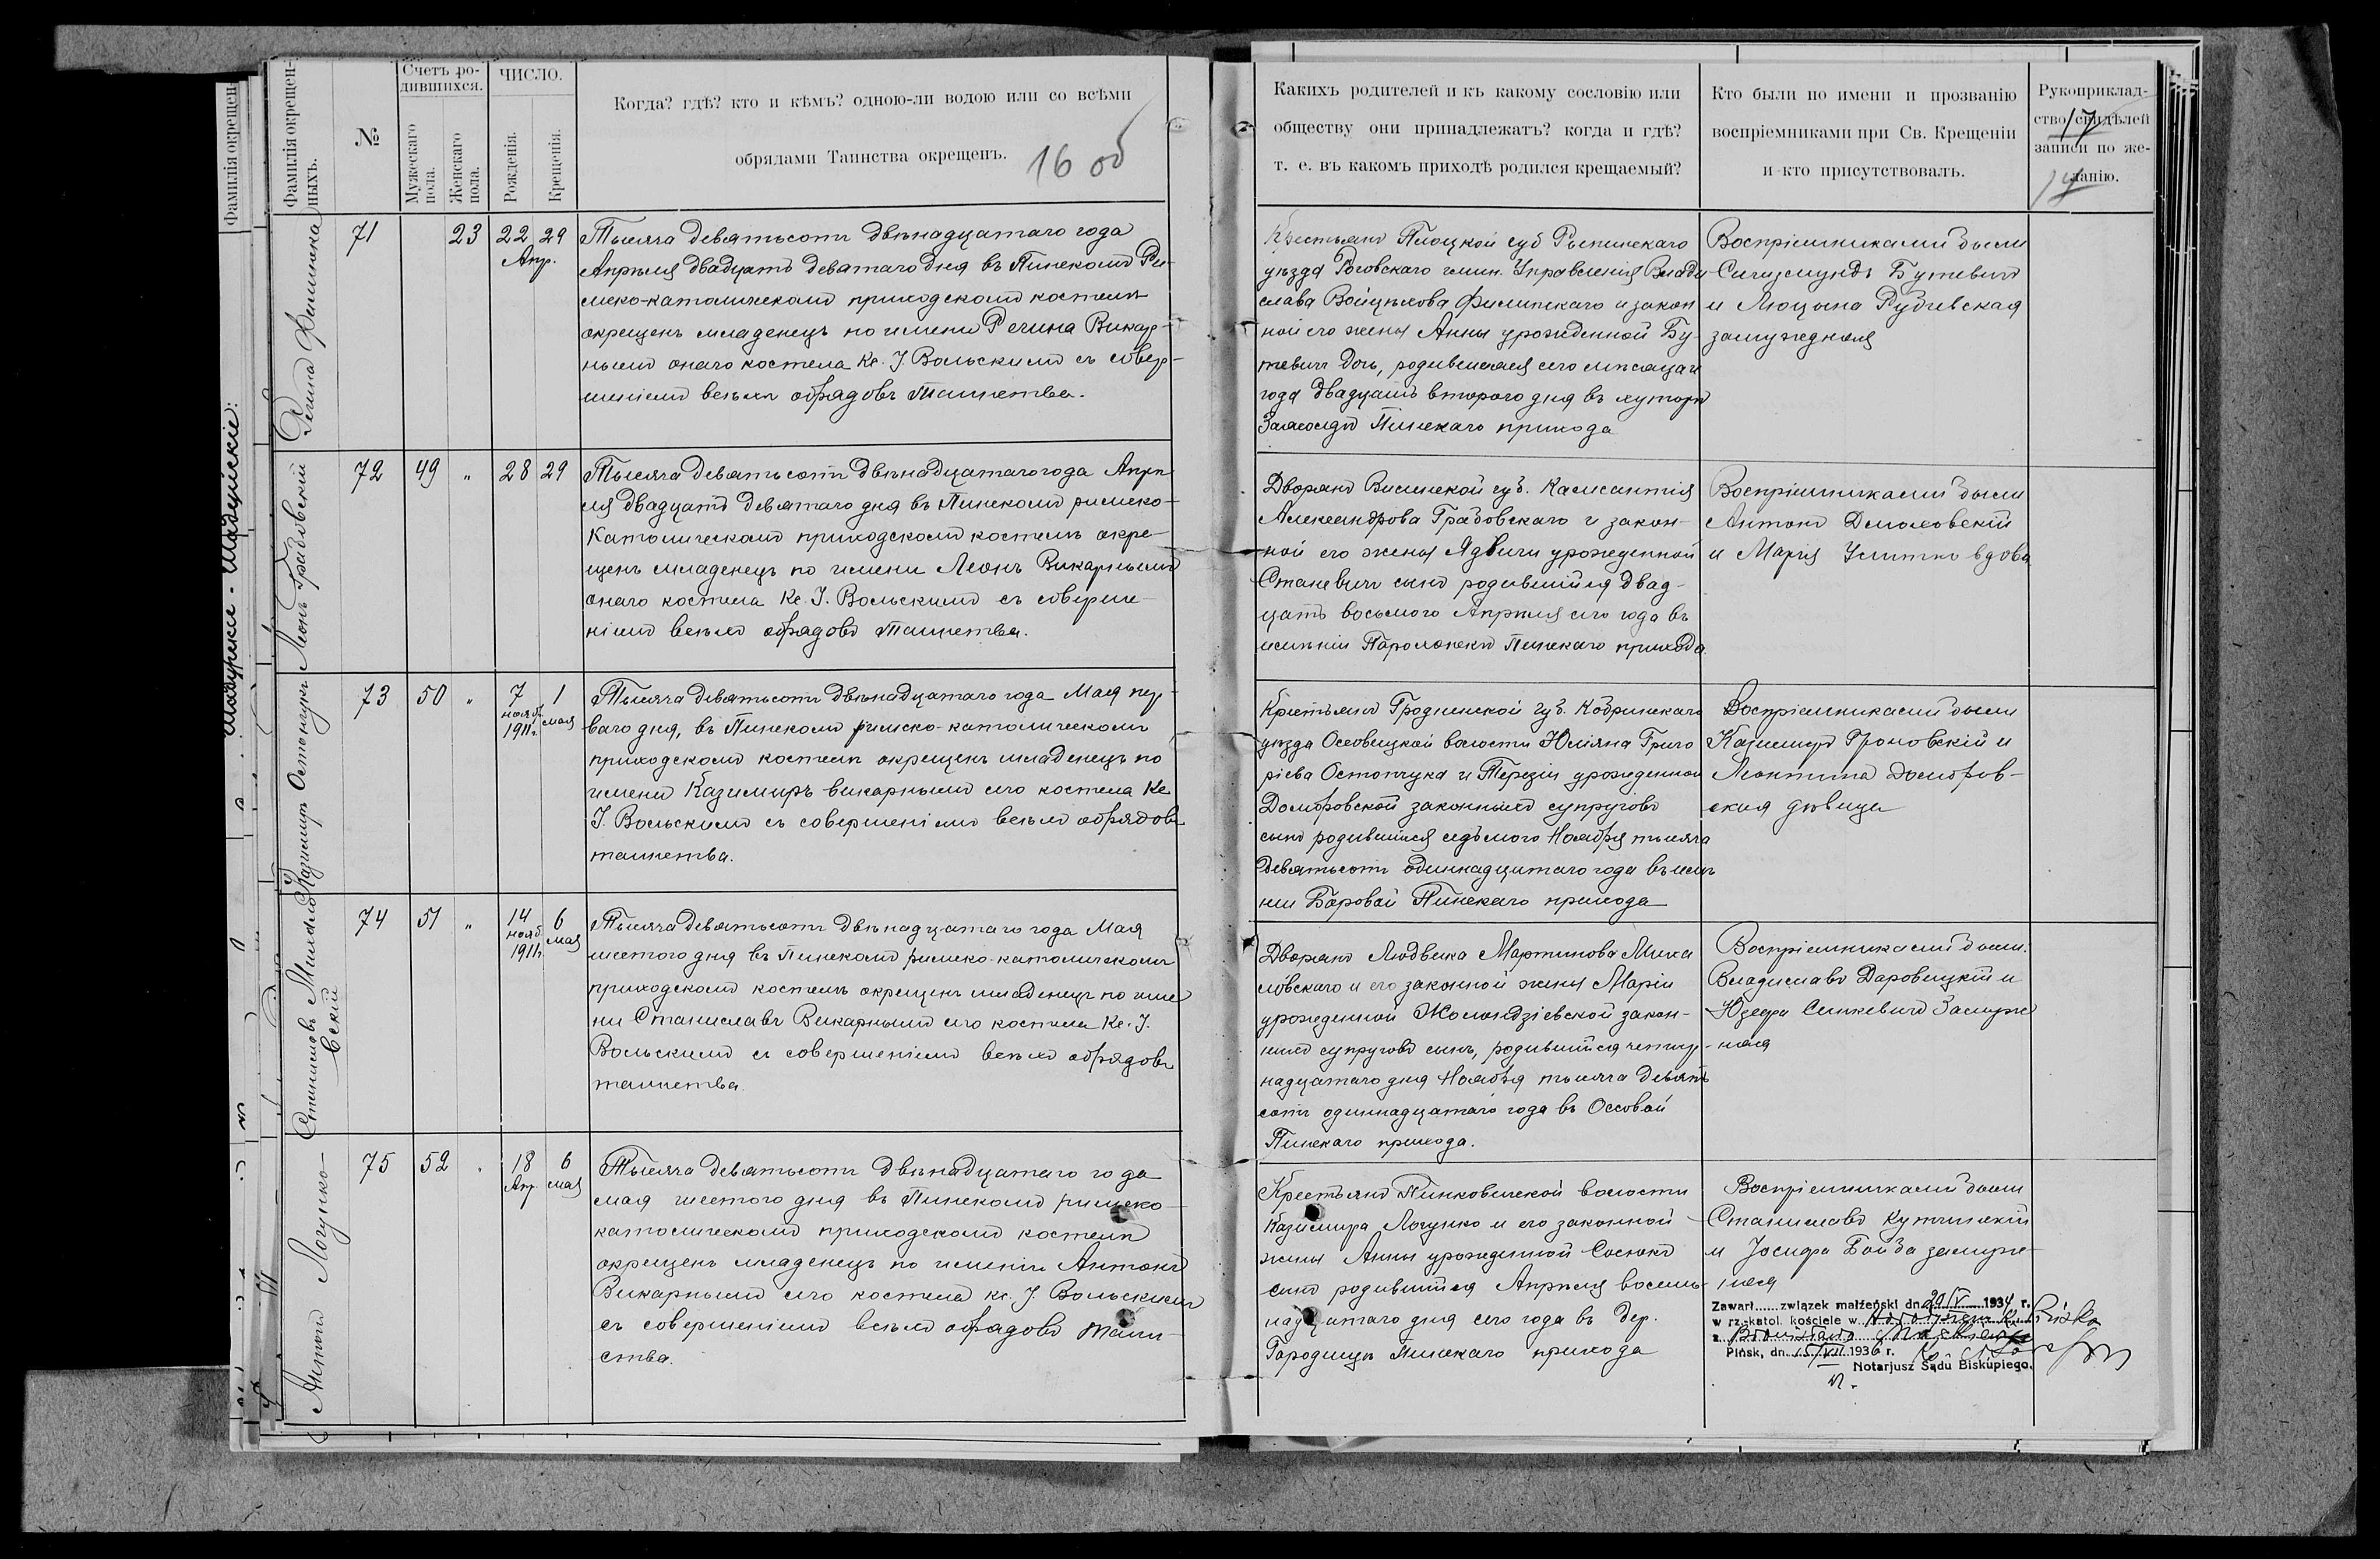 Фамилія окрещен-
Шадурскіе - Шадуйскіе:
Фамилія окрещен-
ныхъ.
№
Счетъ ро-
дившихся.
Мужескаго
пола.
Женскаго
пола.
ЧИСЛО.
Рожденія.
Крещенія.
Когда? гдѣ? кто и кѣмъ? одною-ли водою или со всѣми
обрядами Таинства окрещенъ.
16 об
Какихъ родителей и къ какому сословію или
обществу они принадлежатъ? когда и гдѣ?
т. е. въ какомъ приходѣ родился крещаемый?
Кто были по имени и прозванію
воспріемниками при Св. Крещеніи
и кто присутствовалъ.
Рукоприклад-
ство свидѣлей
записи по же-
ланію.
17
Регина Филипска
71
23
22 29
Апр.
Тысяча девятьсотъ двѣнадцатаго года
Апрѣля двадцать девятаго дня въ Пинскомъ Ри-
мско-католическомъ приходскомъ костелѣ
окрещенъ младенецъ по имени Регина Викар-
нымъ онаго костела Кс. І. Вольскимъ съ совер-
шеніемъ всѣхъ обрядовъ таинства.
Крестьянъ Плоцкой губ Рыпинскаго
уѣзда Роговскаго гмин. Управленія Влади
слава Войцѣхова Филипскаго и закон
ной его жены Анны урожденной Бу-
тевичъ дочь, родившаяся сего мѣсяца и
года двадцать второго дня въ хуторѣ
Пинскаго прихода
Воспріемниками были
Сигизмундъ Бутевичъ
и Люцына Рубчевская
замужедная
Леонъ Грабовскій
72
49
"
28 29
Тысяча девятьсотъ двѣнадцатаго года Апрѣ
ля двадцать девятаго дня въ Пинскомъ римско-
Католическомъ приходскомъ костелѣ окре-
щенъ младенецъ по имени Леонъ Викарнымъ
онаго костела Кс. І. Вольскимъ съ соверше-
ніемъ всѣхъ обрядовъ таинства.
Дворянъ Виленской губ. Каликантія
Александрова Грабовскаго и закон-
ной его жены Ядвиги урожденной
Станевичъ сынъ родившійся двад-
цать восьмого Апрѣля сего года въ
имѣніи Пинскаго прихода
Воспріемниками были
Антонъ Дмоховскій
и Марія Улитко вдова
Казимиръ Остончукъ
73
50
"
7 1
нояб. мая
1911 г.
Тысяча девятьсотъ двѣнадцатаго года Мая пер-
ваго дня, въ Пинскомъ римско-католическомъ
приходскомъ костелѣ окрещенъ младенецъ по
имени Казимиръ викарнымъ сего костела Кс.
І. Вольскимъ съ совершеніемъ всѣхъ обрядовъ
таинства.
Крестьянъ Гродненской губ. Кобринскаго
уѣзда Осовецкой волости Юліяна Григо
ріева Остончука и Терезіи урожденной
Домбровской законныхъ супруговъ
сынъ родившійся седьмого Ноября тысяча
девятьсотъ одиннадцатаго года въ имѣ
ніи Боровой Пинскаго прихода
Воспріемниками были
Казимиръ Гроновскій и
Леонтина Домбров-
ская дѣвица
Станиславъ Михалов-
скій
74
51
"
14 6
нояб. мая
1911 г.
Тысяча девятьсотъ двѣнадцатаго года Мая
шестого дня въ Пинскомъ римско-католическомъ
приходскомъ костелѣ окрещенъ младенецъ по име
ни Станиславъ Викарнымъ сего костела Кс. І.
Вольскимъ съ совершеніемъ всѣхъ обрядовъ
таинства
Дворянъ Людвика Мартинова Миха
ловскаго и его законной жены Маріи
урожденной Жолондзіевской закон-
ныхъ супруговъ сынъ, родившійся четыр-
надцатаго дня Ноября тысяча девять
сотъ одиннадцатаго года въ Оссовой
Пинскаго прихода.
Воспріемниками были.
Владиславъ Даровицкій и
Юзефа Синкевичъ Замуж-
ная
Антонъ Логунко-
75
52
"
18 6
Апр. мая
Тысяча девятьсотъ двѣнадцатаго года
мая шестого дня въ Пинскомъ римско-
католическомъ приходскомъ костелѣ
окрещенъ младенецъ по имени Антонъ
Викарнымъ сего костела кс. І. Вольскимъ
съ совершеніемъ всѣхъ обрядовъ таин-
ства.
Крестьянъ Пинковичской волости
Казимира Логунко и его законной
жены Анны урожденной Сосюкъ
сынъ родившійся Апрѣля восем-
надцатаго дня сего года въ дер.
Городищѣ Пинскаго прихода
Воспріемниками были
Станиславъ Кутчинскій
и Іосифа Бойба замуж-
ная
Zawarł...... związek małżeński dn. 29/IV 1934 r.
w rz.-katol. kościele w
z Bronisławą
Pińsk, dn. 15/VII 1936 r.
Notarjusz Sądu Biskupiego.